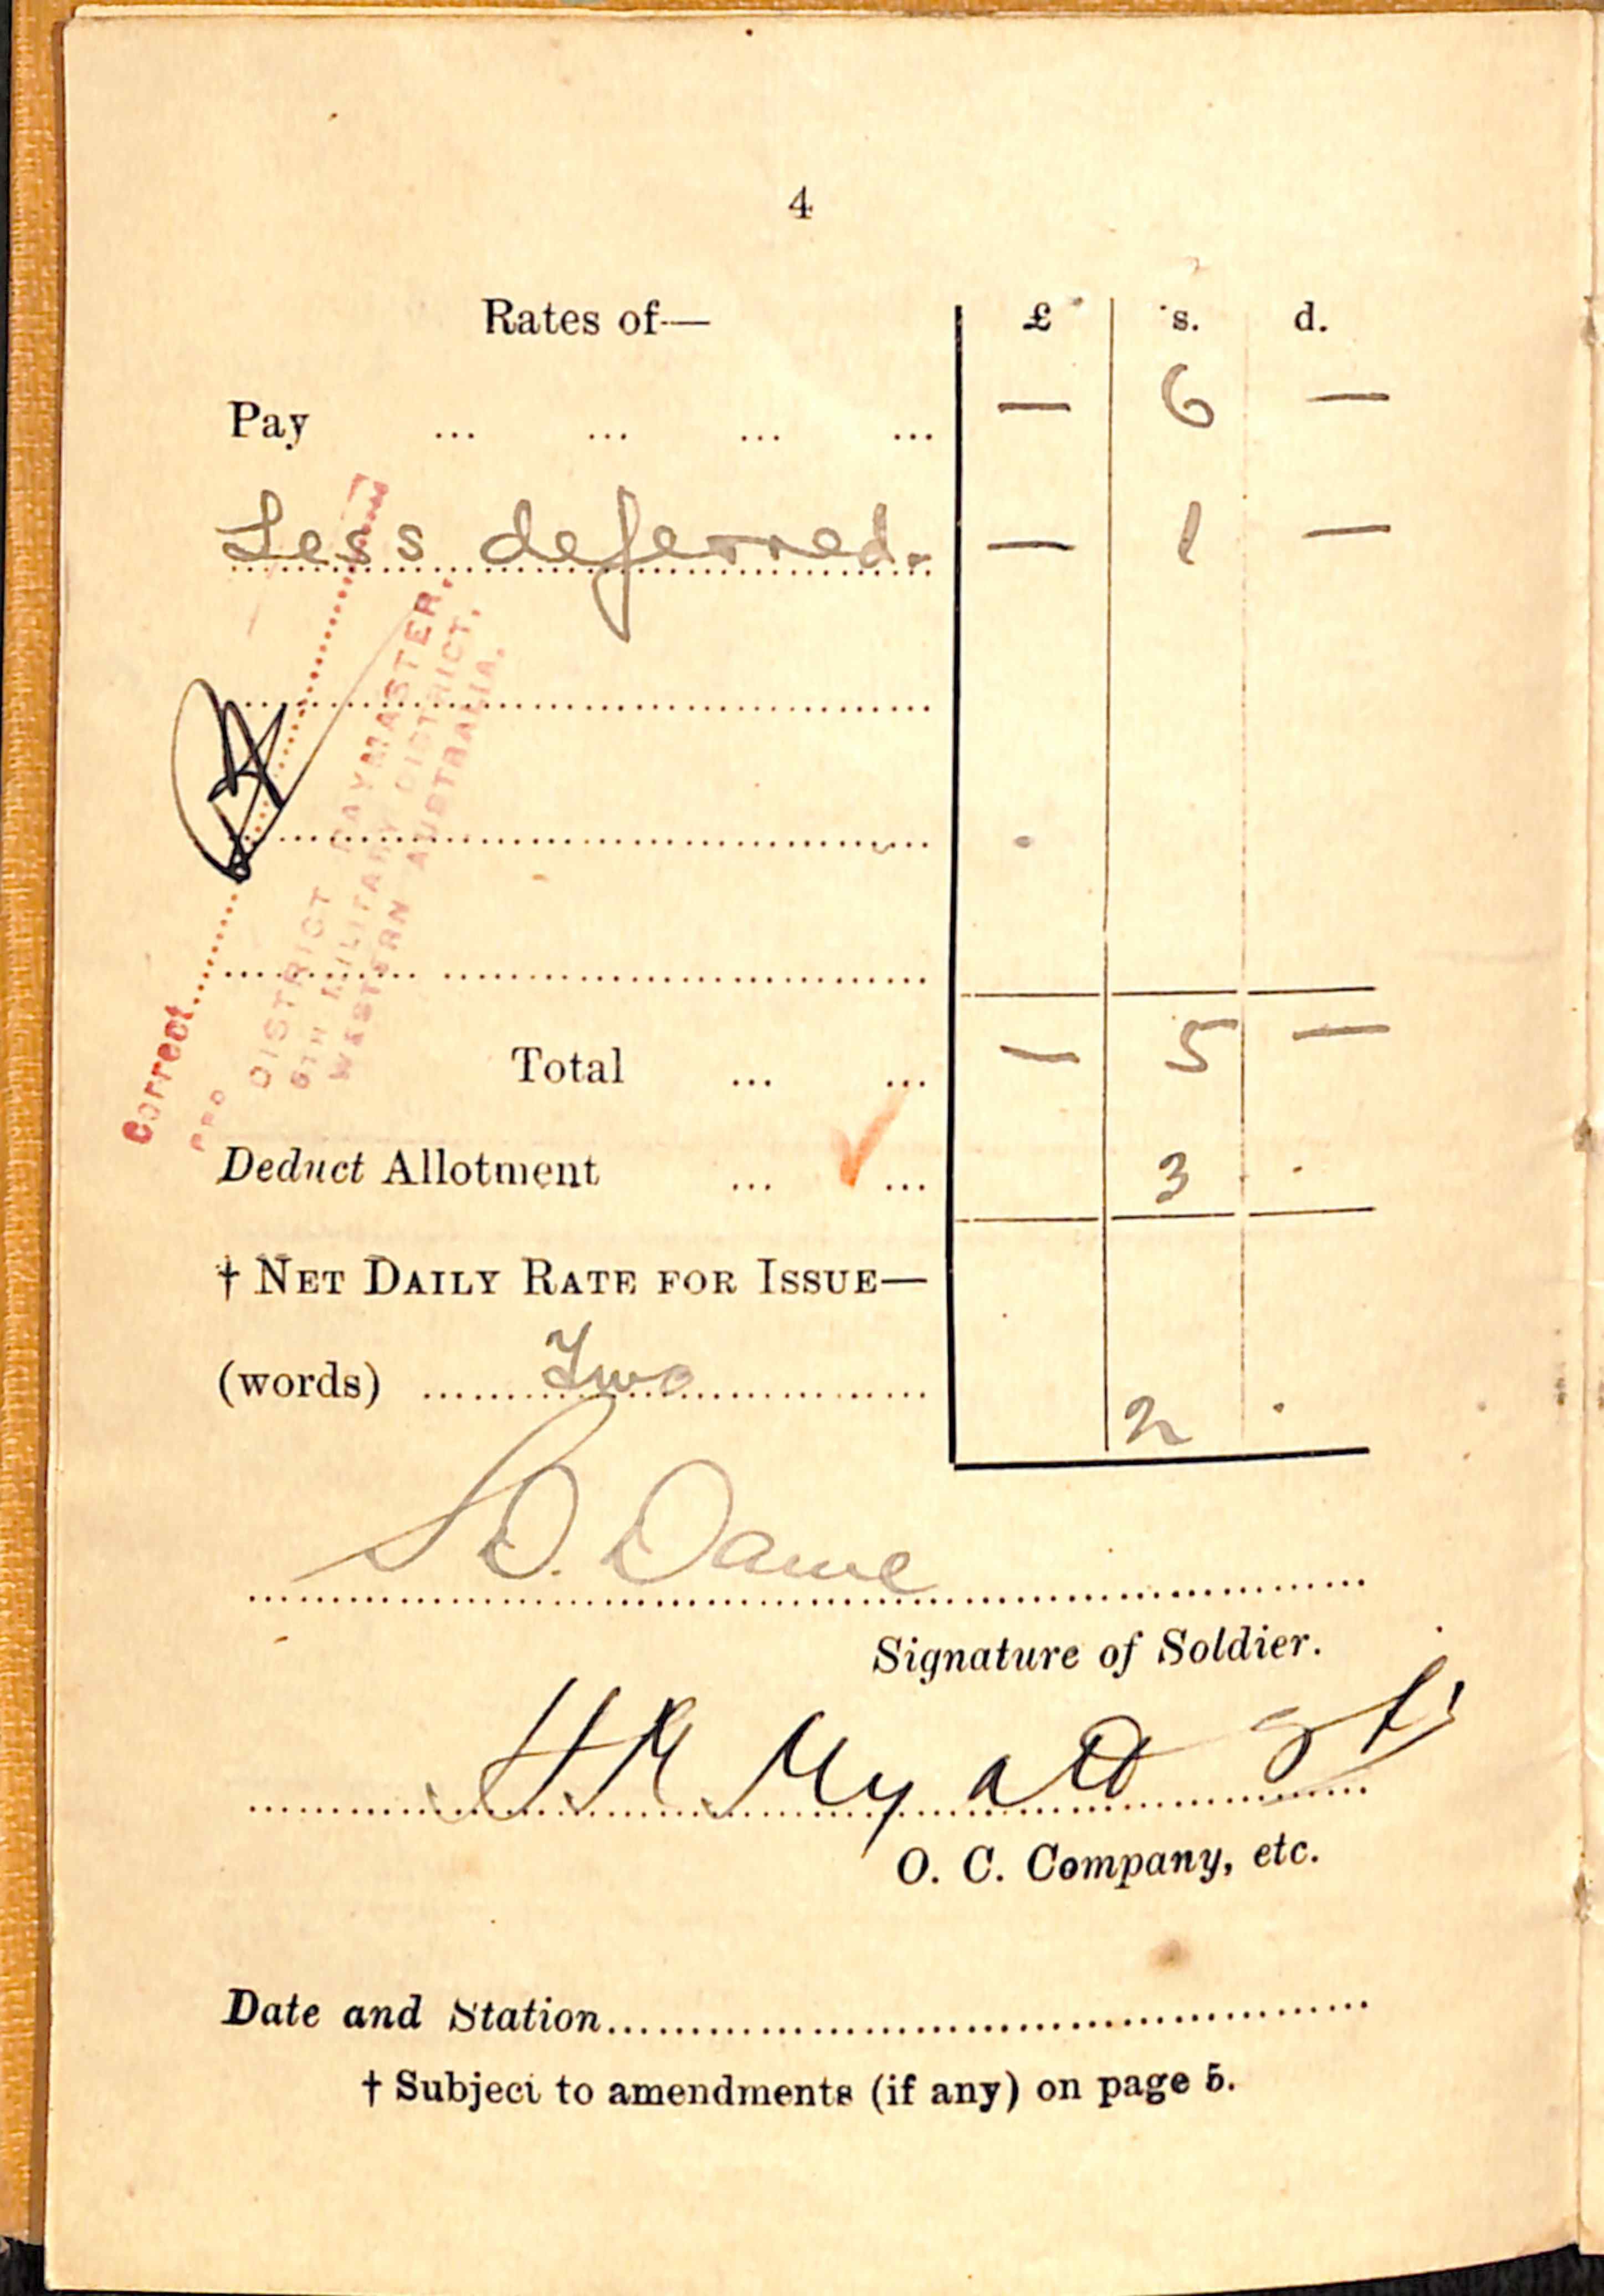 4
Rates of— £ s. d.
Pay ... ... ... ... — 6 —
Less deferred. — 1 —
Total ... ... — 5 —
Deduct Allotment ... ... 3 .
† NET DAILY RATE FOR ISSUE—
(words) Two 2 .
D. Dawe
Signature of Soldier.
O. C. Company, etc.
Date and Station
† Subject to amendments (if any) on page 5.
Correct
PRO DISTRICT PAYMASTER,
5TH MILITARY DISTRICT,
WESTERN AUSTRALIA.